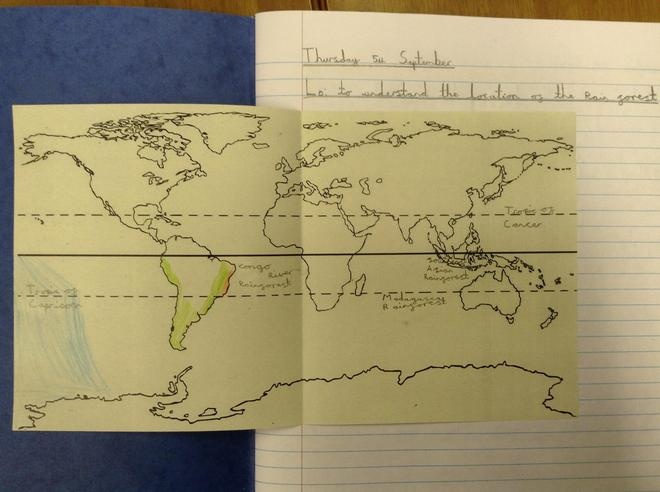 Thursday 5th September
Lo: to understand the Location of the Rain forest
Tropic of
Cancer
Congo
River
Rainforest
Asian
Rainforest
Tropic of
Capricorn
Madagascar
Rainforest